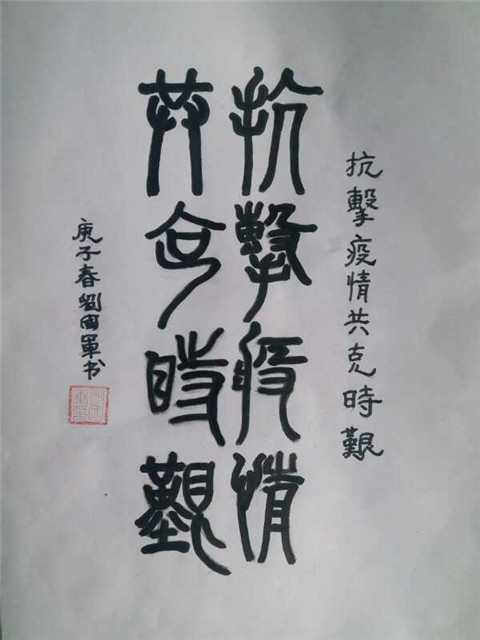 抗擊疫情共克時艱
抗擊疫情
共克時艱
庚子春劉國軍书